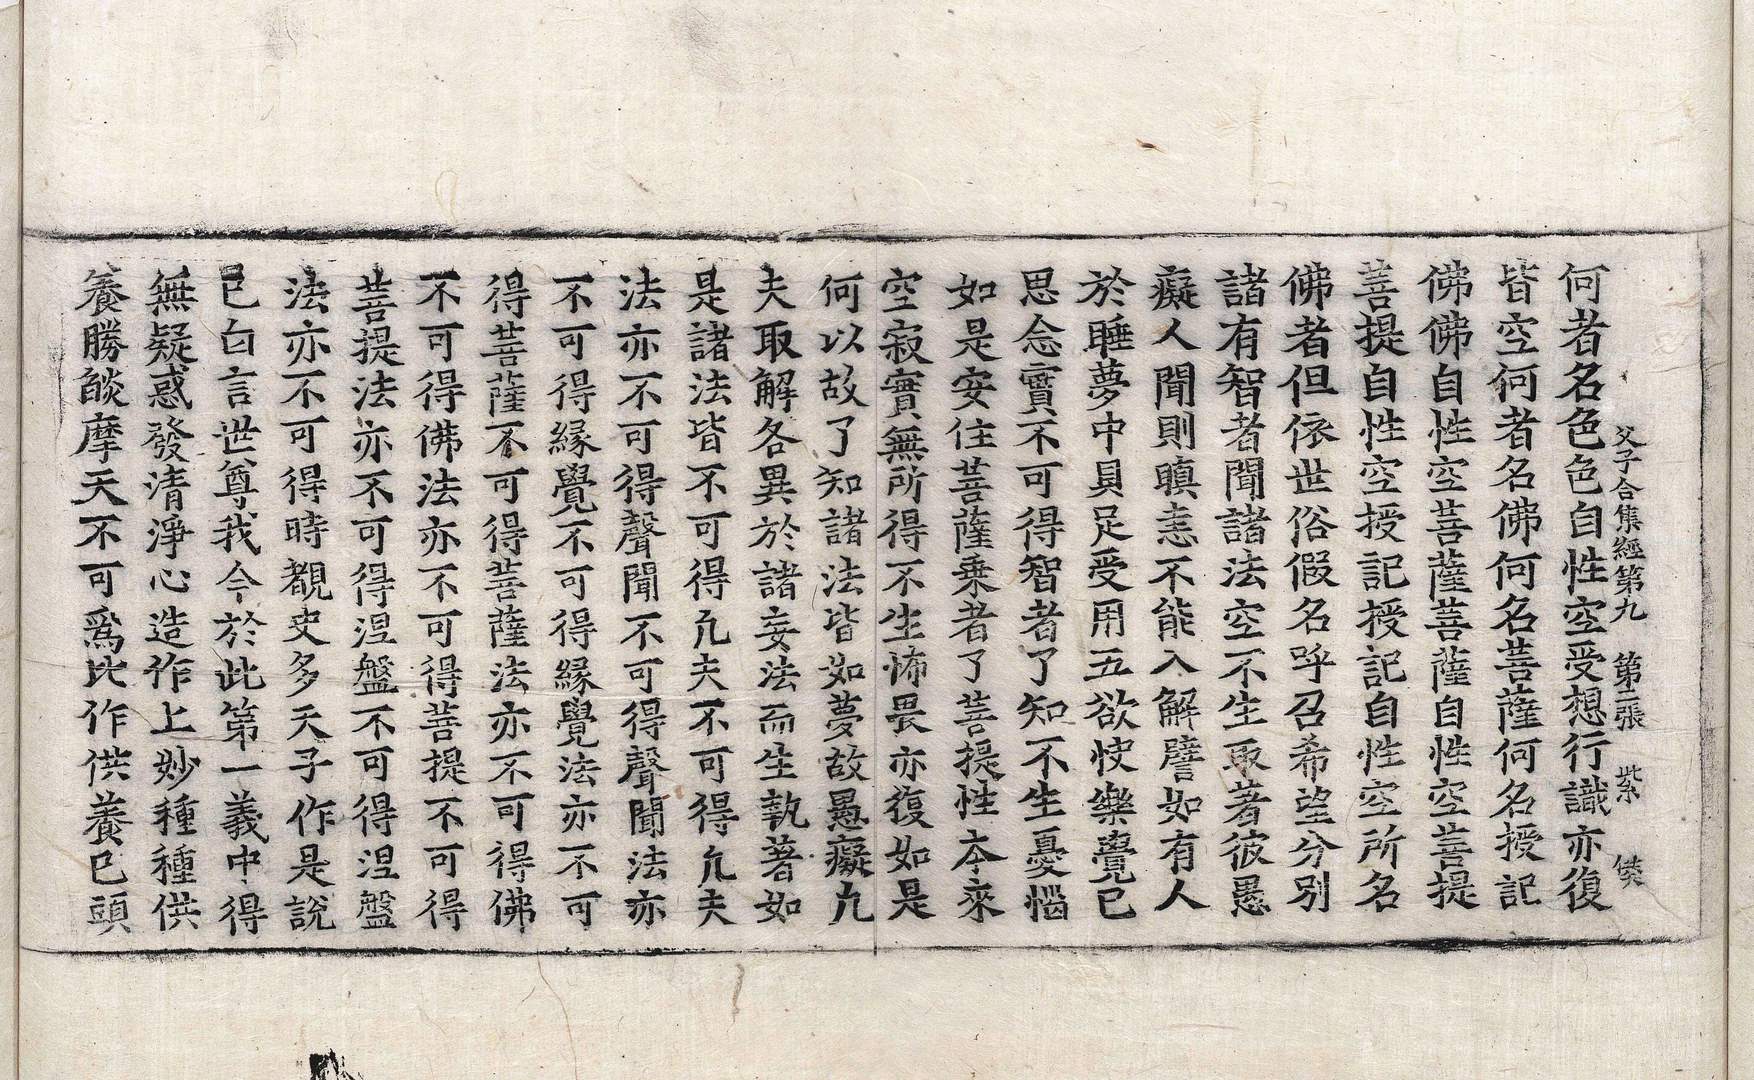 父子合集經第九 第三張 紫
何者名色色自性空受想行識亦復
皆空何者名佛何名菩薩何名授記
佛佛自性空菩薩菩薩自性空菩提
菩提自性空授記授記自性空所名
佛者但依世俗假名呼召希望分別
諸有智者聞諸法空不生取著彼愚
癡人聞則瞋恚不能入解譬如有人
於睡夢中具足受用五欲快樂覺已
思念實不可得智者了知不生憂惱
如是安住菩薩乗者了菩提性本來
空寂實無所得不生怖畏亦復如是
何以故了知諸法皆如夢故愚癡凢
夫取解各異於諸妄法而生執著如
是諸法皆不可得凢夫不可得凢夫
法亦不可得聲聞不可得聲聞法亦
不可得緣覺不可得緣覺法亦不可
得菩薩不可得菩薩法亦不可得佛
不可得佛法亦不可得菩提不可得
菩提法亦不可得涅盤不可得涅盤
法亦不可得時覩史多天子作是說
已白言世尊我今於此第一義中得
無疑惑發清淨心造作上妙種種供
養勝餤摩天不可爲比作供養已頭